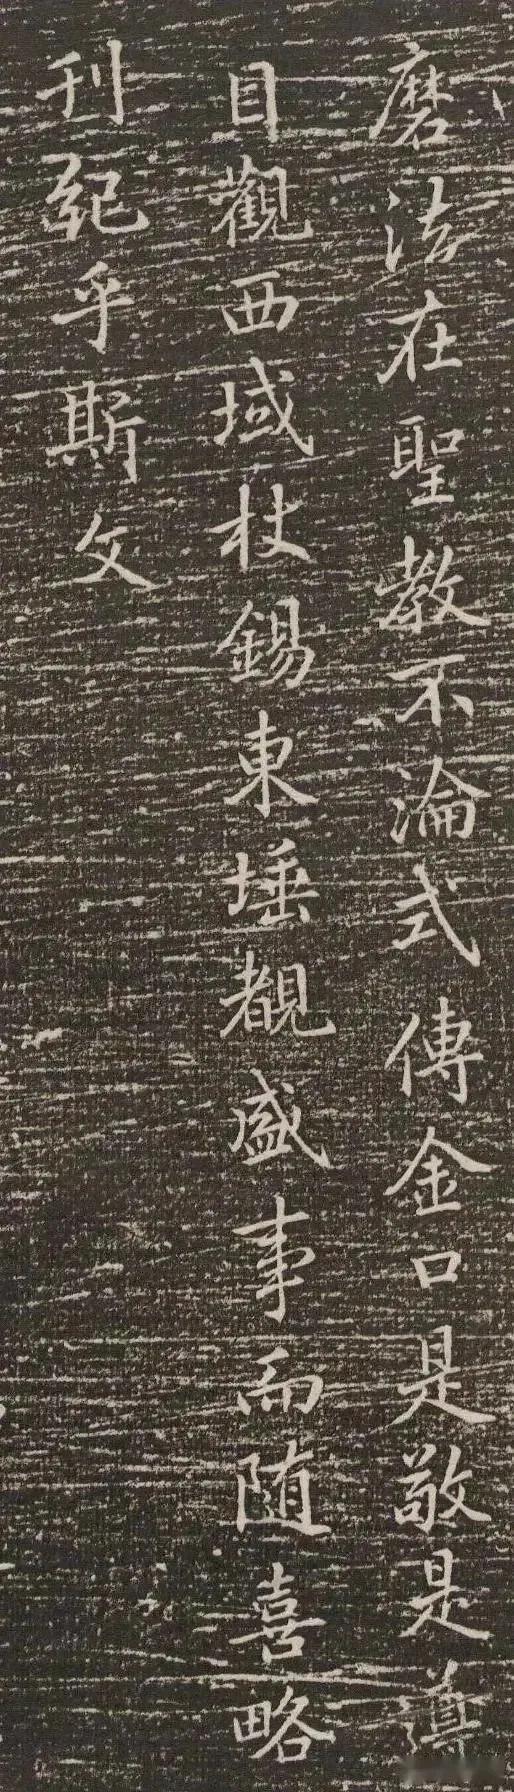 磨法在聖教不淪式傳金口是敬是遵
目觀西域杖錫東埵覩盛事而随喜略
刊紀乎斯文